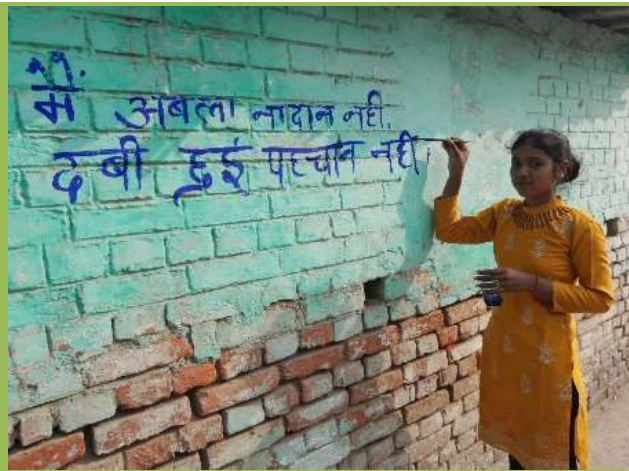 मैं अबला नादान नहीं,
दबी हुई पहचान नहीं।